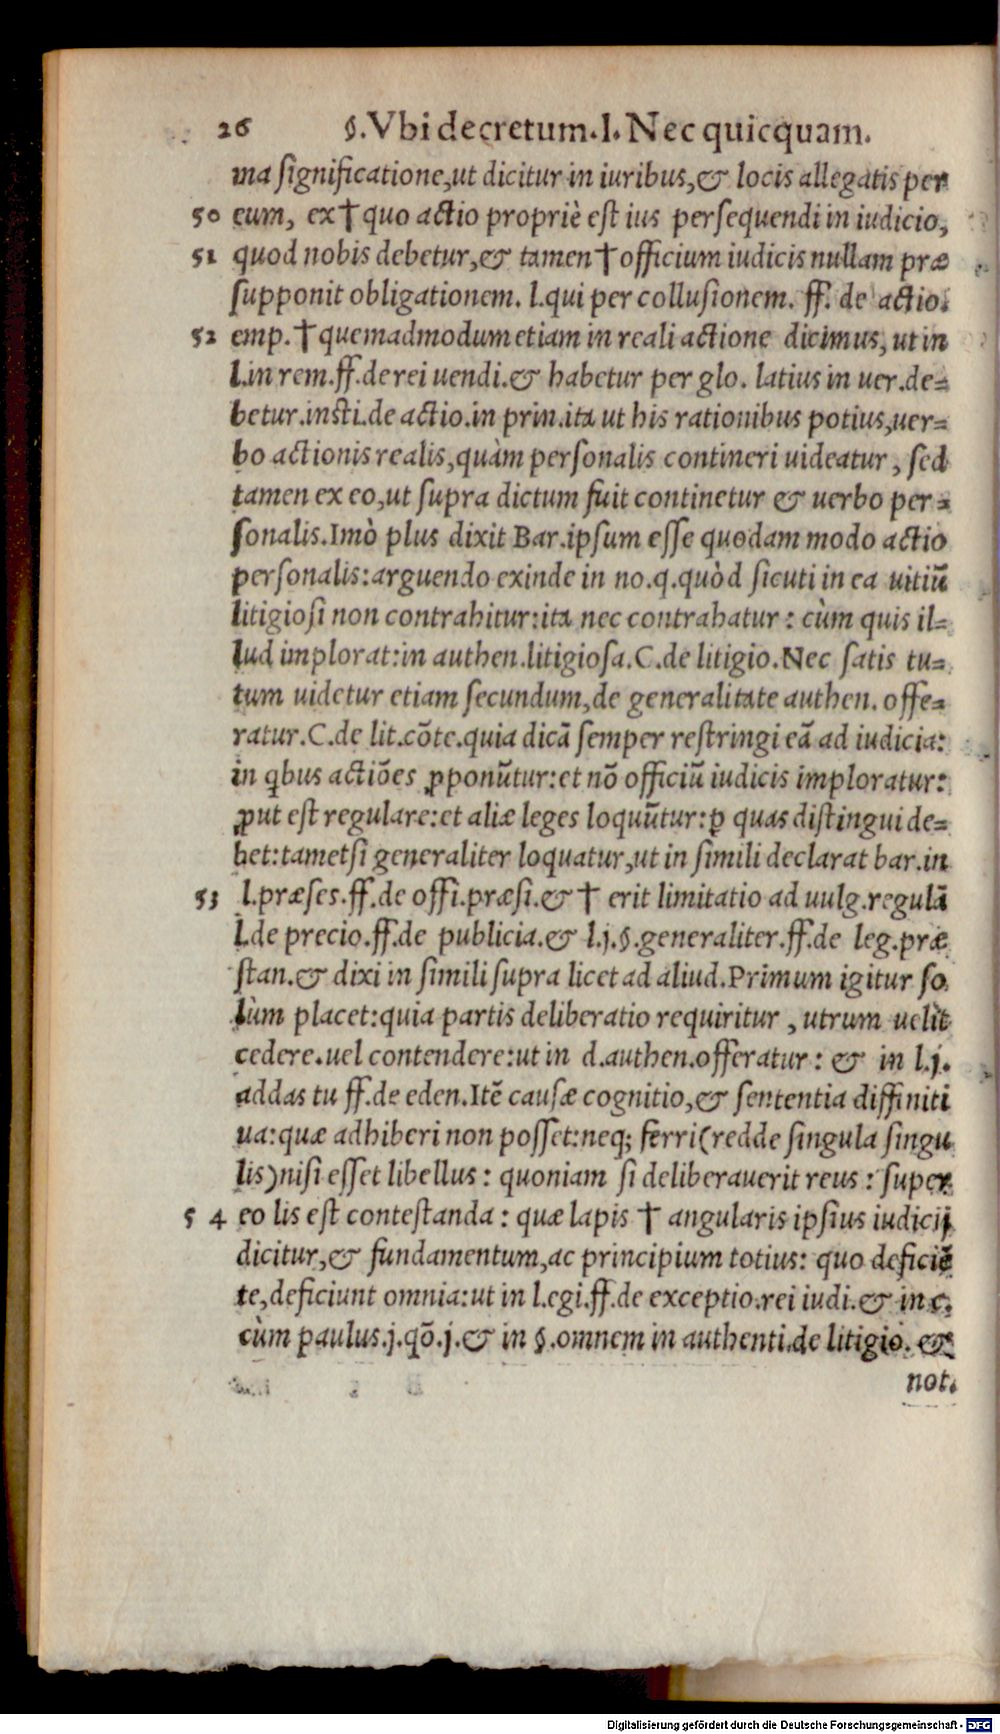 26 §. Vbi decretum. l. Nec quicquam.
ma significatione, ut dicitur in iuribus, & locis allegatis per
50 eum, ex † quo actio propriè est ius persequendi in iudicio,
51 quod nobis debetur, & tamen † officium iudicis nullam præ
supponit obligationem. l. qui per collusionem. ff. de actio.
52 emp. † quemadmodum etiam in reali actione dicimus, ut in
l. in rem. ff. de rei uendi. & habetur per glo. latius in uer. de=
betur. insti. de actio. in prin. ita ut his rationibus potius, uer=
bo actionis realis, quàm personalis contineri uideatur, sed
tamen ex eo, ut supra dictum fuit continetur & uerbo per=
sonalis. Imò plus dixit Bar. ipsum esse quodam modo actio
personalis: arguendo exinde in no. q. quòd sicuti in ea uitiū
litigiosi non contrahitur: ita nec contrahatur: cùm quis il=
lud implorat: in authen. litigiosa. C. de litigio. Nec satis tu=
tum uidetur etiam secundum, de generalitate authen. offe=
ratur. C. de lit. cōte. quia dicā semper restringi eā ad iudicia:
in qbus actiões ꝓponūtur: et nō officiū iudicis imploratur:
ꝓut est regulare: et aliæ leges loquūtur: ꝑ quas distingui de=
bet: tametsi generaliter loquatur, ut in simili declarat bar. in
53 l. præses. ff. de offi. præsi. & † erit limitatio ad uulg. regulā
l. de precio. ff. de publicia. & l. j. §. generaliter. ff. de leg. præ
stan. & dixi in simili supra licet ad aliud. Primum igitur so
lùm placet: quia partis deliberatio requiritur, utrum uelit
cedere. uel contendere: ut in d. authen. offeratur: & in l. j.
addas tu ff. de eden. Itē causæ cognitio, & sententia diffiniti
ua: quæ adhiberi non posset: neq; ferri (redde singula singu
lis) nisi esset libellus: quoniam si deliberauerit reus: super
54 eo lis est contestanda: quæ lapis † angularis ipsius iudicij
dicitur, & fundamentum, ac principium totius: quo deficiē
te, deficiunt omnia: ut in l. egi. ff. de exceptio. rei iudi. & in c.
cùm paulus. j. qō. j. & in §. omnem in authenti. de litigio. &
not.
Digitalisierung gefördert durch die Deutsche Forschungsgemeinschaft - DFG